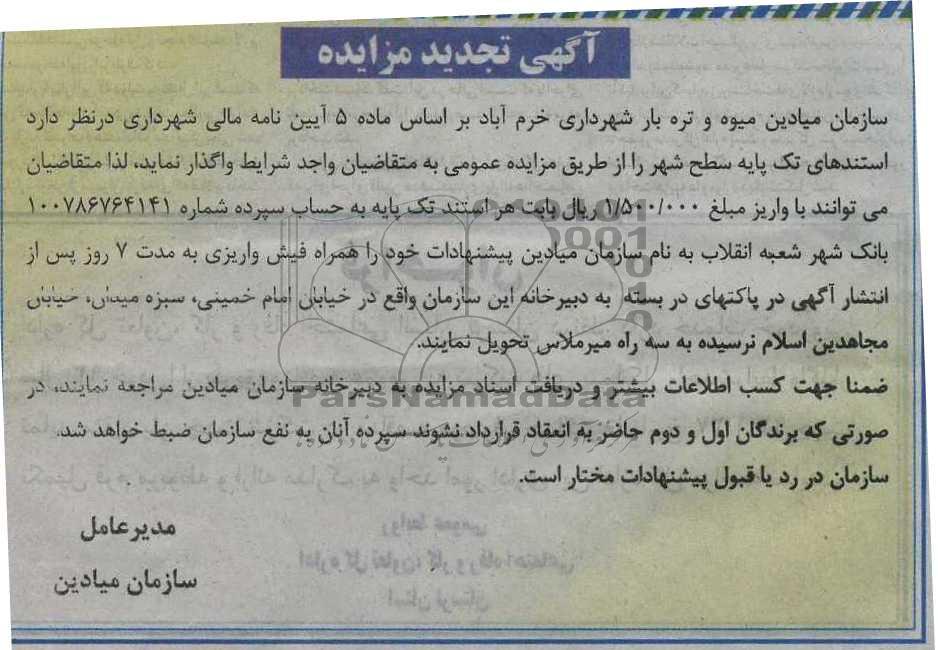 آگهی تجدید مزایده
سازمان میادین میوه و تره بار شهرداری خرم آباد بر اساس ماده ۵ آیین نامه مالی شهرداری درنظر دارد
استندهای تک پایه سطح شهر را از طریق مزایده عمومی به متقاضیان واجد شرایط واگذار نماید، لذا متقاضیان
می توانند با واریز مبلغ ۱/۵۰۰/۰۰۰ ریال بابت هر استند تک پایه به حساب سپرده شماره ۱۰۰۷۸۶۷۶۴۱۴۱
بانک شهر شعبه انقلاب به نام سازمان میادین پیشنهادات خود را همراه فیش واریزی به مدت ۷ روز پس از
انتشار آگهی در پاکتهای در بسته به دبیرخانه این سازمان واقع در خیابان امام خمینی، سبزه میدان، خیابان
مجاهدین اسلام نرسیده به سه راه میرملاس تحویل نمایند.
ضمنا جهت کسب اطلاعات بیشتر و دریافت اسناد مزایده به دبیرخانه سازمان میادین مراجعه نمایند، در
ParsNamadData
صورتی که برندگان اول و دوم حاضر به انعقاد قرارداد نشوند سپرده آنان به نفع سازمان ضبط خواهد شد.
سازمان در رد یا قبول پیشنهادات مختار است.
مدیرعامل
سازمان میادین